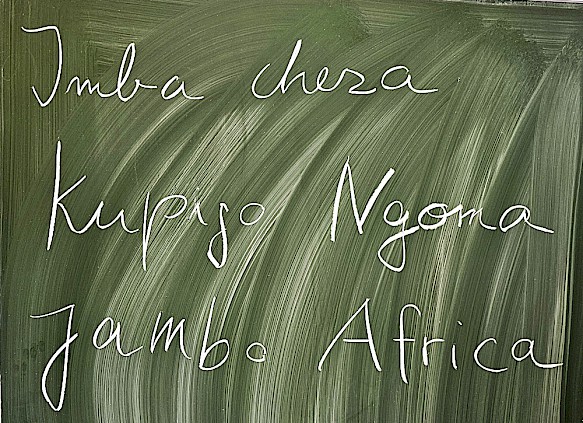 Imba cheza
Kupigo Ngoma
Jambo Africa